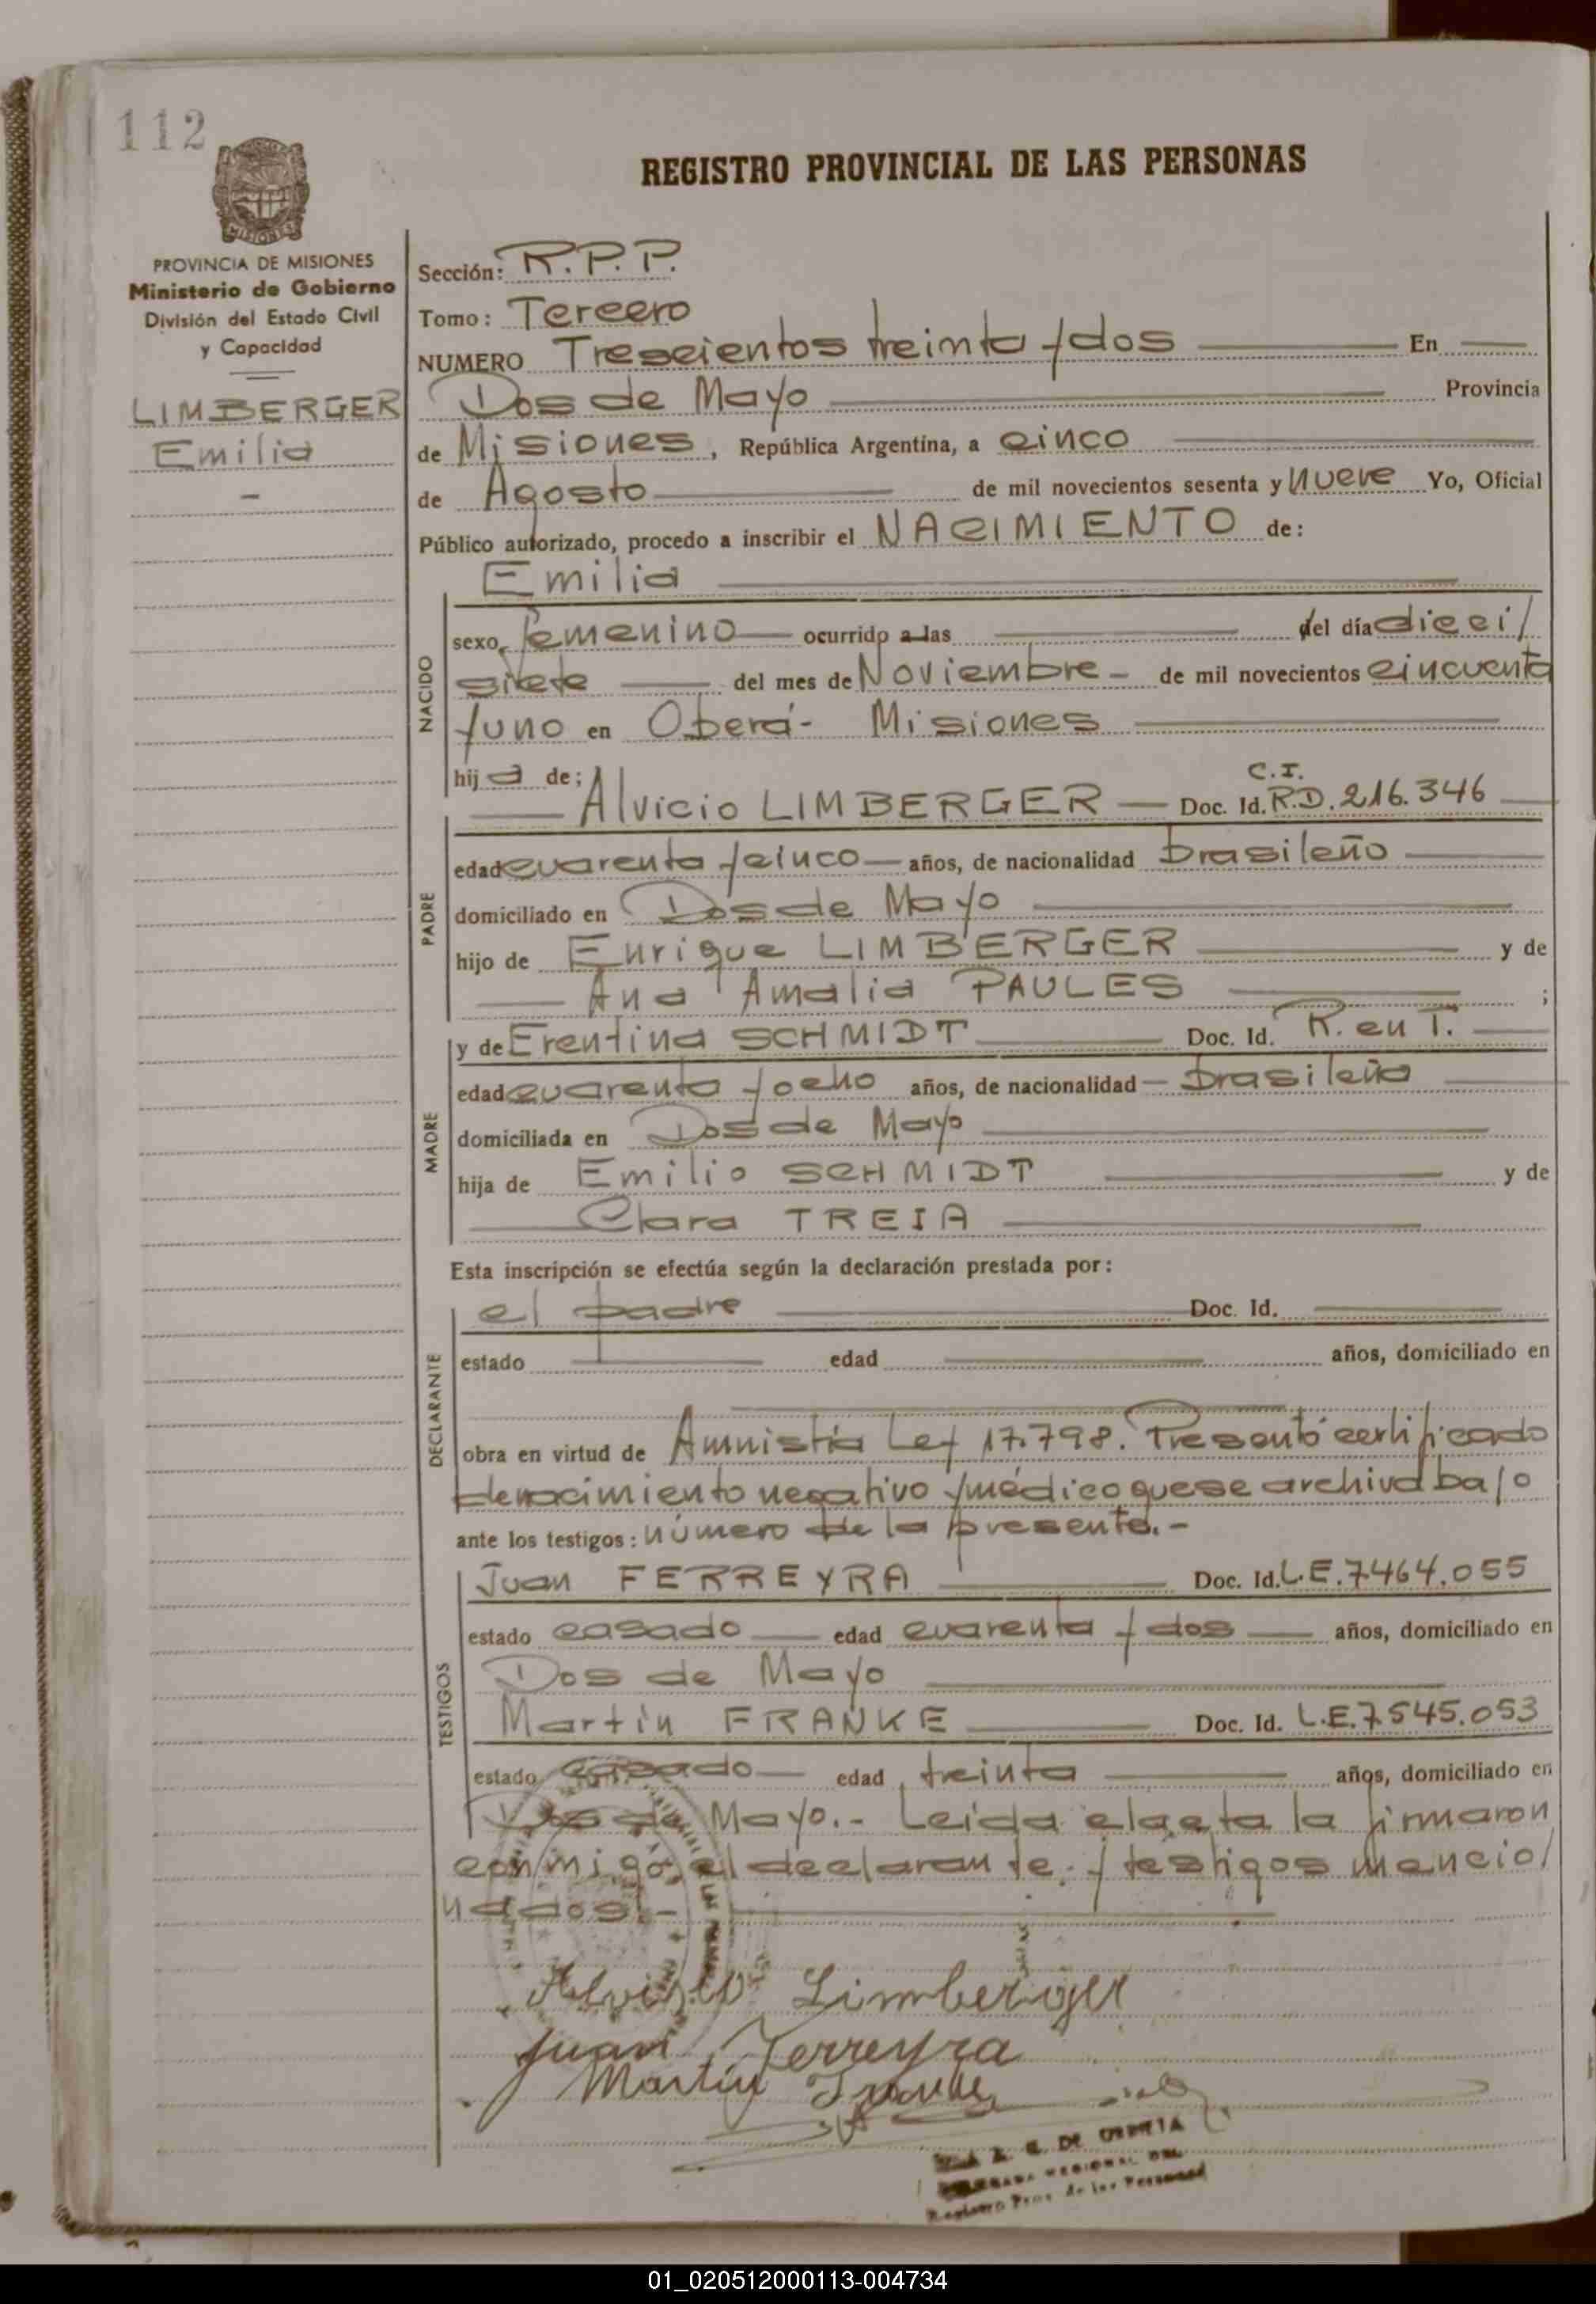 112
REGISTRO PROVINCIAL DE LAS PERSONAS
MISIONES
PROVINCIA DE MISIONES
Ministerio de Gobierno
División del Estado Civil
y Capacidad
LIMBERGER
Emilia
Sección: R.P.P.
Tomo: Tercero
NUMERO Trescientos treinta y dos En
Dos de Mayo Provincia
de Misiones, República Argentina, a cinco
de Agosto de mil novecientos sesenta y nueve Yo, Oficial
Público autorizado, procedo a inscribir el NACIMIENTO de:
Emilia
NACIDO
sexo femenino ocurrido a las del día dieci/
siete del mes de Noviembre de mil novecientos cincuenta
y uno en Oberá - Misiones
hija de;
C.I.
Alvicio LIMBERGER Doc. Id. R.D. 216.346
PADRE
edad cuarenta y cinco años, de nacionalidad brasileño
domiciliado en Dos de Mayo
hijo de Enrique LIMBERGER y de
Ana Amalia PAULES ;
y de Erentina SCHMIDT Doc. Id. R. en T.
MADRE
edad cuarenta y ocho años, de nacionalidad brasileña
domiciliada en Dos de Mayo
hija de Emilio SCHMIDT y de
Clara TREIA
Esta inscripción se efectúa según la declaración prestada por:
DECLARANTE
el padre Doc. Id.
estado edad años, domiciliado en
obra en virtud de Amnistía Ley 17.798. Presentó certificado
de nacimiento negativo y médico que se archiva bajo
ante los testigos: número de la presente.-
TESTIGOS
Juan FERREYRA Doc. Id. L.E. 7.464.055
estado casado edad cuarenta y dos años, domiciliado en
Dos de Mayo
Martín FRANKE Doc. Id. L.E. 7.545.053
estado casado edad treinta años, domiciliado en
Dos de Mayo.- Leída el acta la firmaron
conmigo, el declarante y testigos mencio/
nados.-
Alvicio Limberger
Juan Ferreyra
Martin Franke
DE URRUTIA
REGIONAL DEL
Registro Prov. de las Personas
01_020512000113-004734